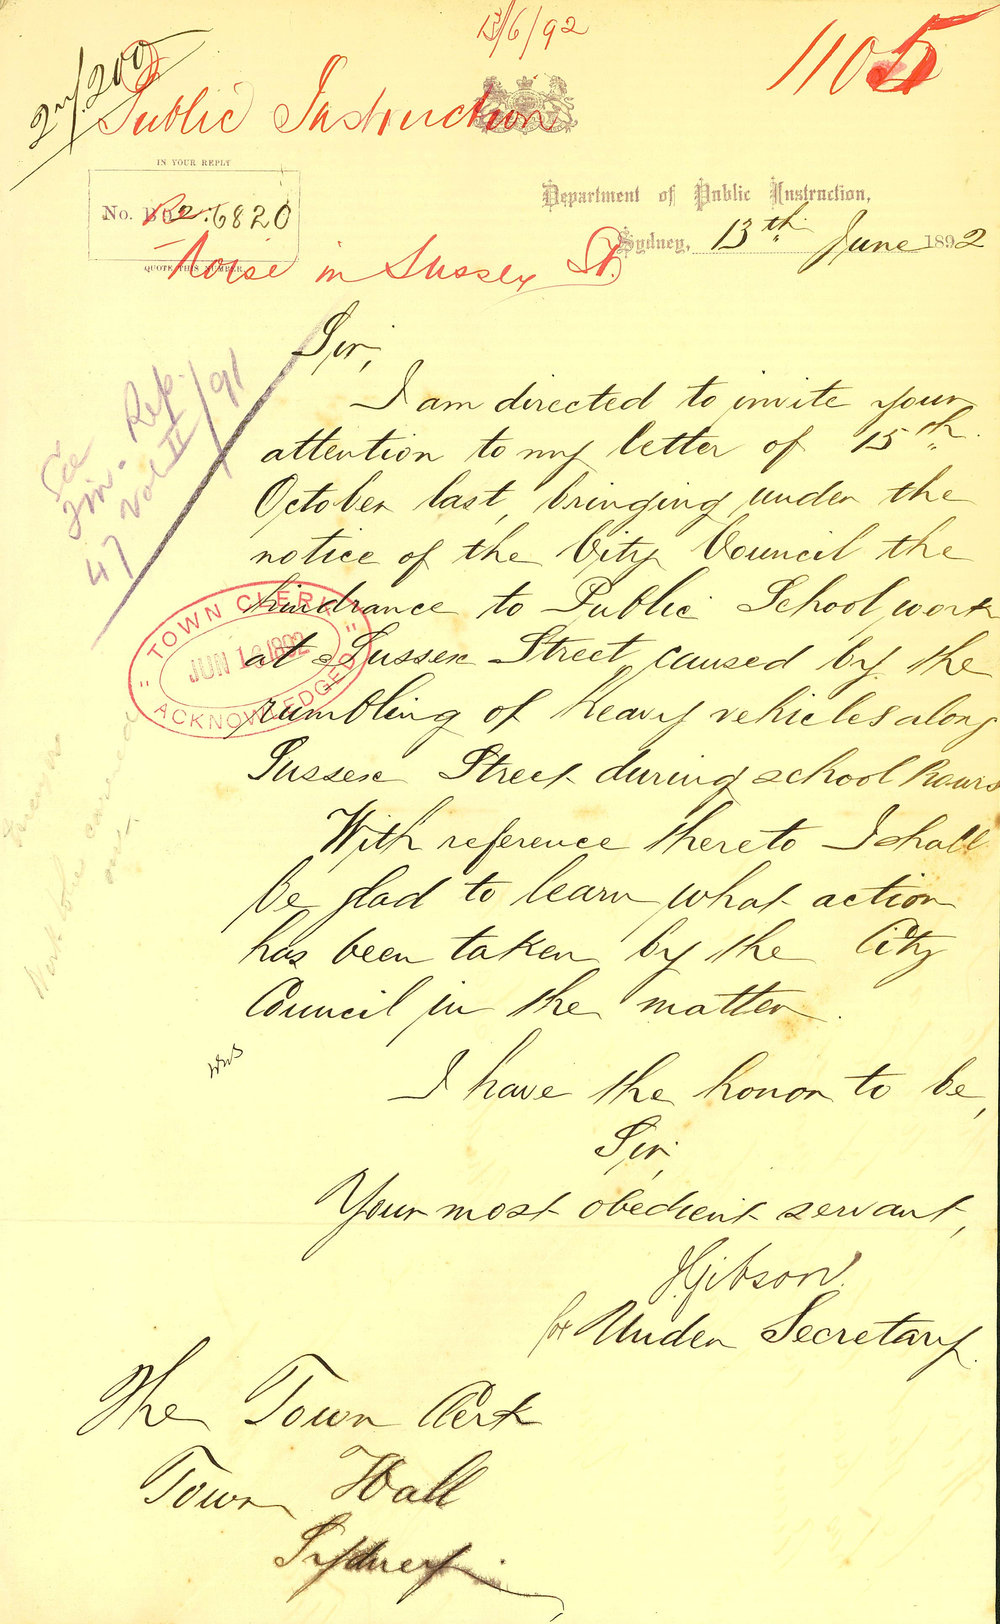 13/6/92
1105
Public Instruction
IN YOUR REPLY
No. 6820
QUOTE THIS NUMBER
Department of Public Instruction,
Sydney, 13th June 1892
Noise in Sussex St.
Sir,
I am directed to invite your
attention to my letter of 15th
October last, bringing under the
notice of the City Council the
hindrance to Public School work
at Sussex Street, caused by the
rumbling of heavy vehicles along
Sussex Street during school hours
With reference thereto I shall
be glad to learn what action
has been taken by the City
Council in the matter.
I have the honor to be,
Sir,
Your most obedient servant,
J. Gibson
for Under Secretary.
The Town Clerk
Town Hall
Sydney
See
Rep.
47 Vol II/91
TOWN CLERK
JUN 1892
ACKNOWLEDGED
Work to be carried
out.